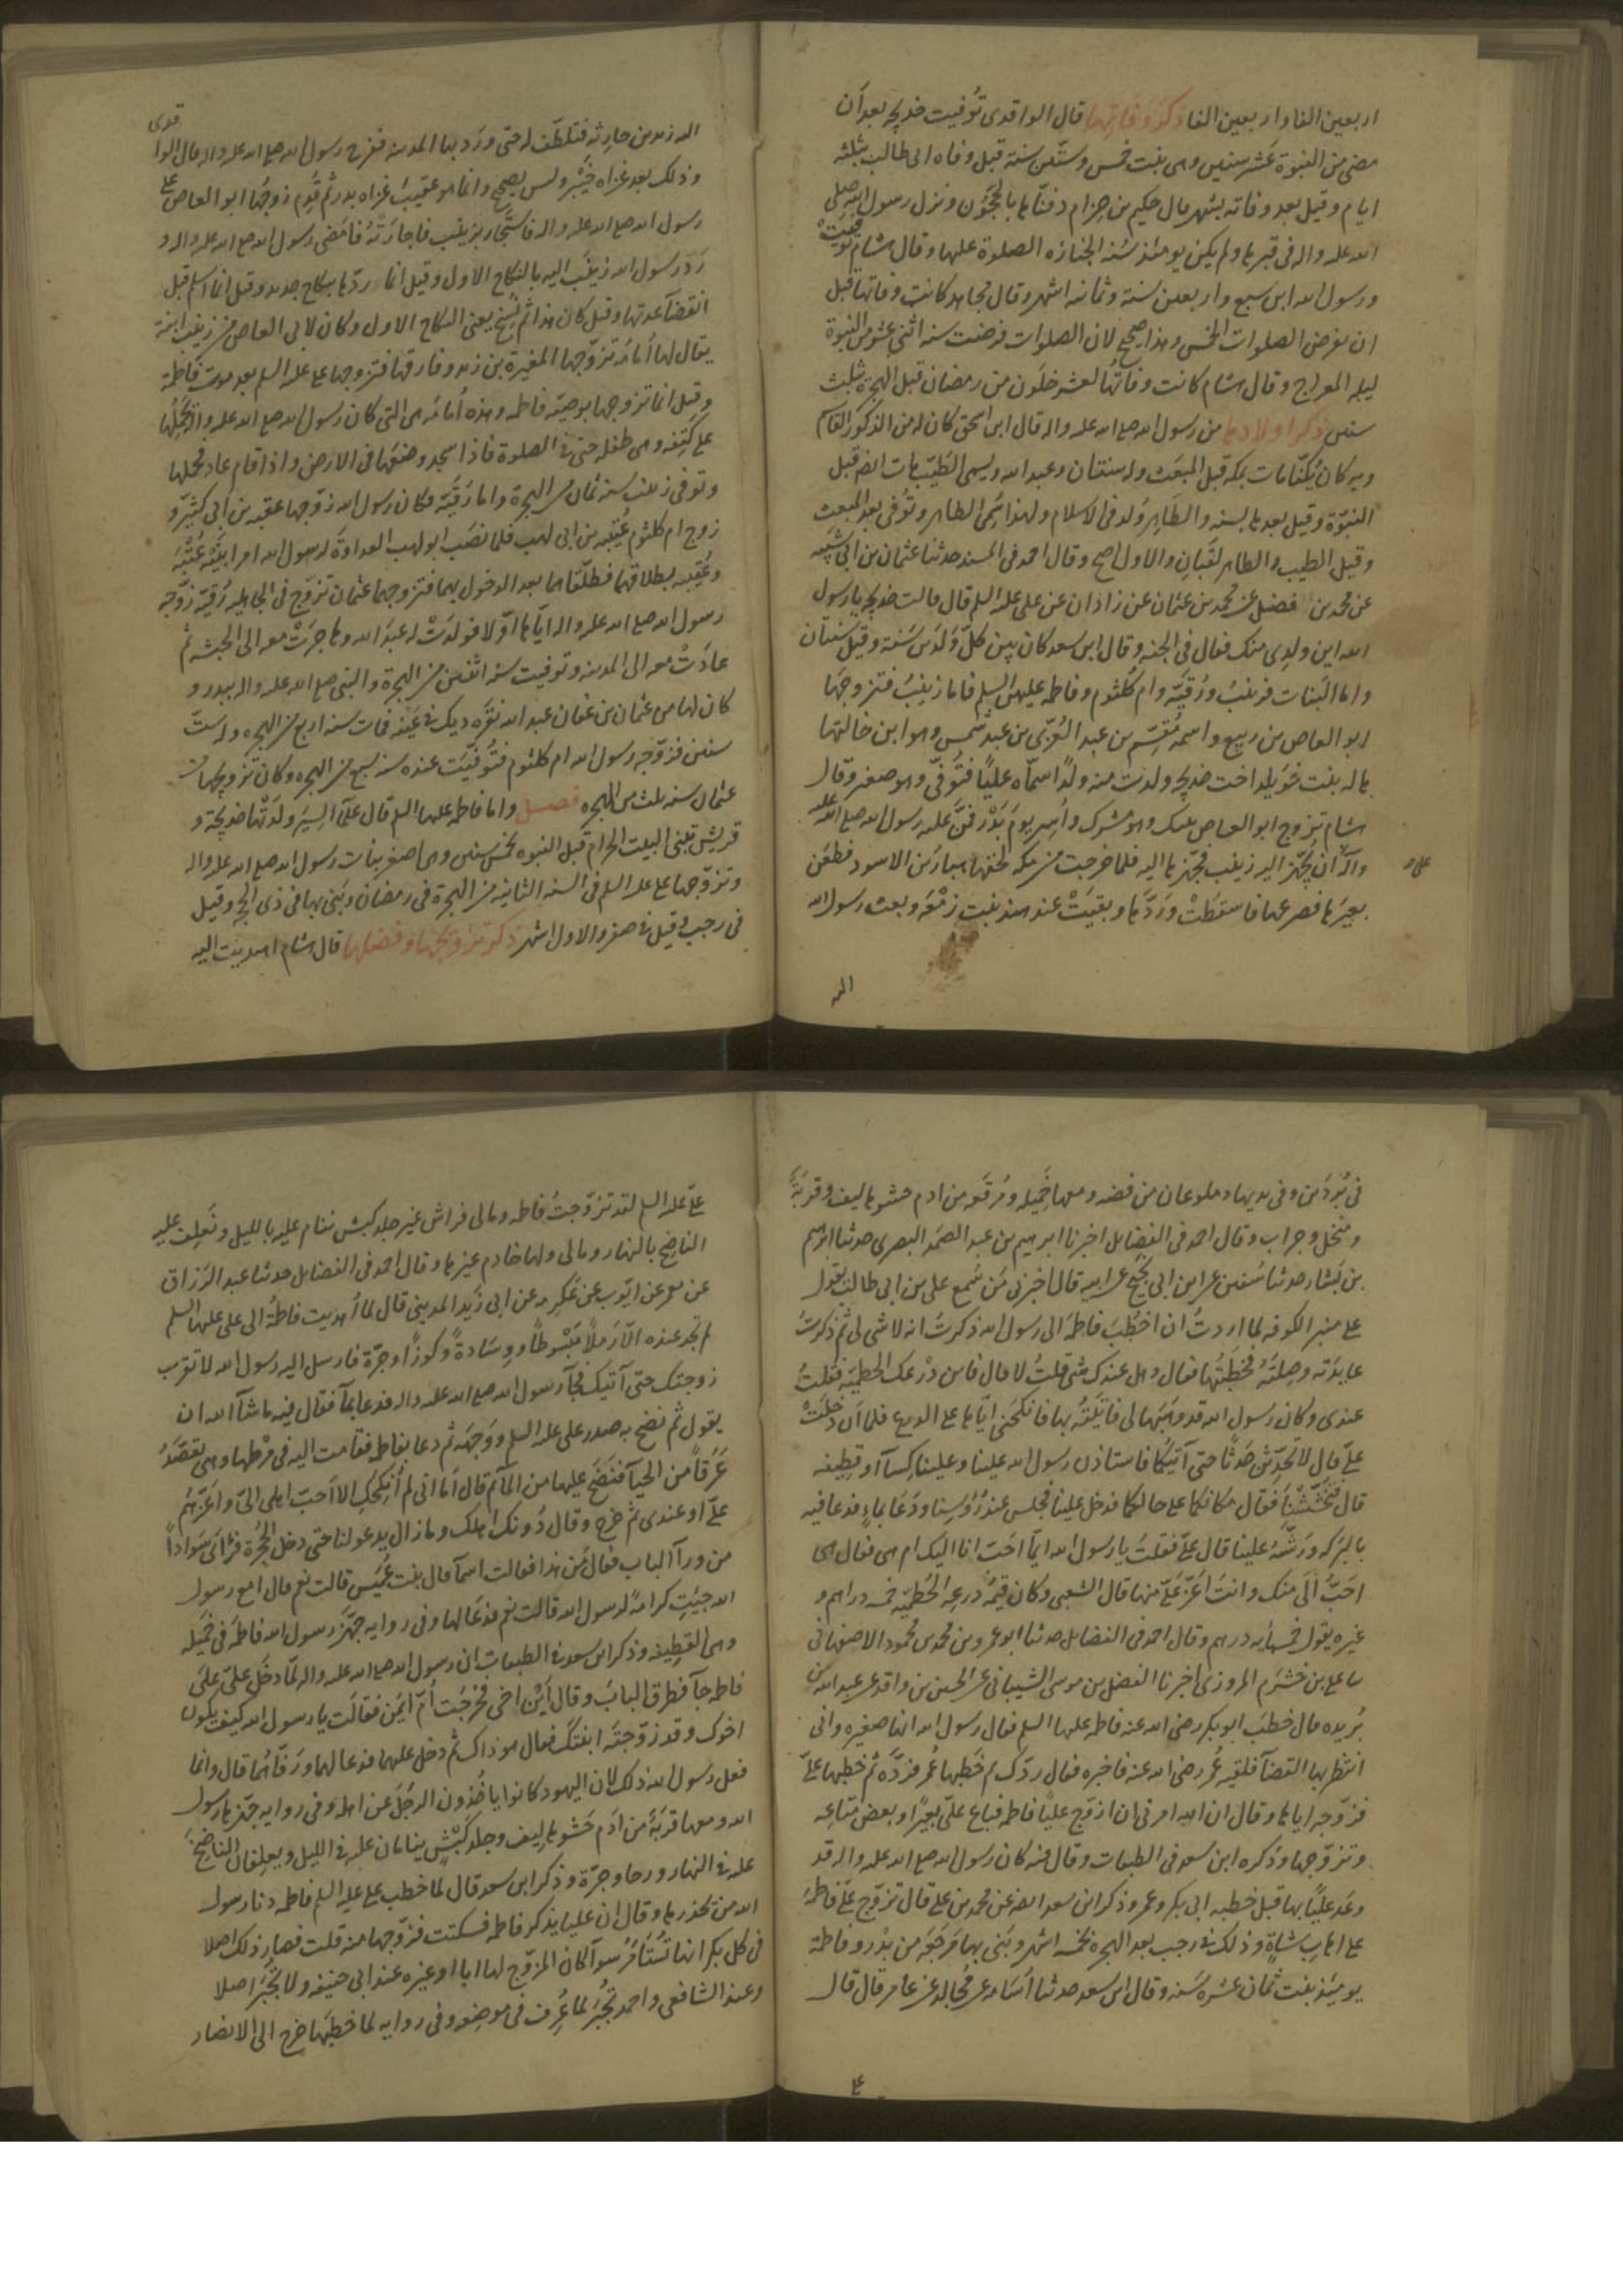 اربعين الفا واربعين الفا ذكر وفاتها قال الواقدى توُفيت خديجه بعد اَن
مضى من النبوة عَشر سنين وهى بنت خمس وستّين سنة قبل وفاه ابى طالب بثلثه
ايام وقيل بعد وفاته بشهر قال حكيم بن حزام دفنّاها بالحَجُون ونزل رسول الله صلى
الله عليه واله فى قبرها ولم يكن يومئذ سُنة الجنازه الصلوة عليها وقال هشام توفيت
ورسول الله ابن سبع واربعين سنة وثمانيه اشهر وقال مجاهد كانت وفاتها قبل
ان يفرض الصلوات الخمس وهذا صحيح لان الصلوات فرضت سنه اثنى عشر من النبوة
ليله المعراج وقال هشام كانت وفاتُها لعشر خلَون من رمضان قبل الهجرة بثلث
سنين ذكر اولادها من رسول الله صلع الله عليه واله قال ابن اسحق كان له من الذكور القاسم
وبه كان يُكنّا مات بمكه قبل المبعَث وله سنتان وعبد الله ويسمى الطَيّب مات ايضا قبل
النبوّة وقيل بعدها بسنه والطَاهر وُلد فى الاسلام ولهذا سُمِى الطاهر وتوُفى بعد المبعث
وقيل الطيب والطاهر لقبانِ والاول اصح وقال احمد فى المسند حدثنا عثمان بن ابى شَيْبَه
عن محمد بن فضيل عن محمد بن عثمان عن زاذان عن على عليه السلم قال قالت خديجه يا رسول
الله اين ولدى منك فقال فى الجنه وقال ابن سعد كان بين كلّ وَلدَين سَنة وقيل سنتان
واما البَنات فزينبُ ورُقيَّه وام كلثوم وفاطمه عليهنّ السلم فاما زينبُ فتزوجَها
ابو العاص بن ربيع واسمه مُقسّم بن عبد العُزّى بن عبد شمس وهو ابن خالتها
هاله بنت خوَيلد اخت خديجه ولدت منه ولدًا اسمّاه عليًا فتوُفّى وهو صغير وقال
هشام تزوج ابو العاص بزينب وهو مشرك واُسِر يومَ بَدْر فمنَّ عليه رسول الله صلع الله عليه
واله آن يُجّهز اليه زينب فجهزها اليه فلما خرجت من مكه لحقها هبار بن الاسود فطعَن
بعيرَها فصرعها فاسقطَتْ ورَدَّها وبقيَتْ عند هند بنت زمْعَه وبعث رسول الله
اليه
اليه زيد بن حارثه فتلطّف له حتى ورَد بها المدينه ففرح رسول الله صلع الله عليه واله قال الوا
قدى
وذلك بعد غزاه خَيْبَر وليس بصحيح وانما هو عقيبَ غزاه بدر ثم قدِم زوجُها ابو العاص على
رسول الله صلع الله عليه واله فاستَجار بزينب فاجارَتْهُ فامضى رسول الله صلع الله عليه واله و
رَدّ رسول الله زينَب اليه بالنكاح الاول وقيل انما ردّها بنكاح جديد وقيل انما اسلم قبل
انقضآ عدتها وقيل كان هذا ثم نُسِخ يعنى النكاح الاول وكان لابى العاص من زينب ابنة
يقال لها اُمامَه تزوّجها المغيرة بن زيد وفارقها فتزوجها على عليه السلم بعد موت فاطمة
وقيل انما تزوجها بوصيّه فاطمه وهذه اُمامه هى التى كان رسول الله صلع الله عليه واله يحمِلُها
على كتِفه وهى طفله حتى فى الصلوة فاذا سجد وضعَها فى الارض واذا قام عاد يحملها
وتوفى زينب سنه ثمان من الهجرة واما رُقيَّه فكان رسول الله زوّجها عقبه بن ابى
زوج ام كلثوم عُتَيْبه من ابى لهب فلما نصَب ابو لهب العداوة لرسول الله امر ابنَيْه عُتْبَه
وعُتَيبه بطلاقهما فطلّقاهما بعد الدخول بهما فتزوجهما عثمان تزوّج فى الجاهليه رُقيّه زوّجه
رسول الله صلع الله عليه واله ايّاها اوّلا فولدَتْ له عبدَ الله وهاجرَتْ معه الى الحبشه ثم
عادَتْ معه الى المدينه وتوفيت سنه اثنتين من الهجرة والنبى صلع الله عليه واله ببدر و
كان لها من عثمان بن عفان عبد الله نقَره ديك فى عَينه فمات سنه اربع من الهجره وله ستّ
سنين فزوّجه رسول الله ام كلثوم فتوّفيّت عنده سنه سبع من الهجره وكان تزويجُها من
عثمان سنه ثلث من الهجره فصل واما فاطمه عليها السلم قال علمآ السِيَر ولدَتْها خديجة و
قريش تبنى البيت الحرام قبل النبوه بخمس سنين وهى اصغر بنات رسول الله صلع الله عليه واله
وتزوّجها على عليه السلم فى السنه الثانيه من الهجرة فى رمضان وبَنى بها فى ذى الحجه وقيل
فى رجب وقيل فى صفر والاول اشهر ذكر تزويجها وفضلها قال هشام اهديت اليه
فى بُردَين وفى يديها دملوجان من فضه ومعها خَميله ومُرفقَه من ادم حشوها ليف وقربَةٌ
ومُنخل وجراب وقال احمد فى الفضايل اخبرنا ابرهيم بن عبد الصمَد البصرى حدثنا ابرهيم
بن بَشار حدثنا سُفين عن ابن ابى نجيح عن ابيه قال اخبرنى مَن سَمع على بن ابى طالب يقول
على منبر الكوفه لما اردتُ ان اخطُبَ فاطمهَ الى رسول الله ذكرتُ انه لا شى لى ثم ذكرتُ
عايدَته وصِلتَهُ فخطَبتُها فقال وهل عندك شى قلتُ لا قال فاين دْرعك الحطميّه فقلتُ
عندى وكان رسول الله قد وهَبَها لى فاتَيْتُه بها فانكحَنى ايّاها على الدرع فلما اَن دخلَتْ
علىّ قال لا تُحَدِّثن حَدثًا حتى آتيكما فاستاذن رسول الله علينا وعلينا كسآ او قطِيفه
قال فتحَشْحَشْنا فقال مكانكما على حالكما فدخل علينا فجلس عند رُؤسِنا ودَعَا بماءٍ فدعا فيه
بالبَركه ورَشّهُ علينا قال علىّ فقلتُ يا رسول الله ايمّا احَبّ انا اليك ام هى فقال هى
احَبُّ الَى منك وانتَ اعَزّ علَىّ منها قال الشعبى وكان قيمةُ دِرعه الحُطميّه خمسه دراهم و
غيره يقول خمسمأيه درهم وقال احمد فى الفضايل حدثنا ابو عمرو بن محمد بن محمود الاصفهانى
سا على بن خشرَم المروزى اخبرنا الفضل بن موسى الشيبانى عن الحسين بن واقد عن عبد الله بن
بُريده قال خطبَ ابو بكر رضى الله عنه فاطمه عليها السلم فقال رسول الله انها صغيره وانى
انتظر بها القضآ فلقيه عُمر رضى الله عنه فاخبره فقال ردّك ثم خَطَبها عُمر فردّه ثم خطبها علىّ
فزوّجه اياها وقال ان الله امرنى ان ازوّج عليًا فاطمه فباع علىّ بعيرًا وبعض متاعِه
وتزوّجها وذكره ابن سعد فى الطبقات وقال فيه كان رسول الله صلع الله عليه واله قد
وعَدَ عليًّا بها قبل خطبه ابى بكر وعمر وذكر ابن سعد ايضا عن محمد بن على قال تزوّج علىّ فاطمهَ
على اهابِ شاةٍ وذلك فى رجب بعد الهجره بخمسه اشهر وبَنى بها مَرجَعَه من بدْر وفاطمة
يومئذ بنت ثمان عشره سَنه وقال ابن سعد حدثنا اُسَامه عن مُجالد عن عامر قال قال
على
علىّ عليه السلم لقد تزوّجتُ فاطمه ومالى فراش غير جلد كبش ننام عليه بالليل ونعلِف عليه
الناضِح بالنهار ومالى ولها خادم غيرها وقال احمد فى الفضايل حدثنا عبد الرَزاق
عن معمر عن ايّوب عن عَكِرمه عن ابى زيَد المدينى قال لما اُهديت فاطمةُ الى على عليهما السلم
لم تجد عنده الّا رَملاً مَبْسْوطاً ووِسَادةً وكوزًا وجرّة فارسل اليه رسول الله لا تقرب
زوجتك حتى آتيك فجآ رسول الله صلع الله عليه واله فدعا بمآ فقال فيه ما شآ الله ان
يقول ثم نضح به صدر على عليه السلم ووَجهَه ثم دعا بفاطمه فقامت اليه فى مْرطها وهى تقصَدُ
عَرَقاً من الحيآ فنَضَح عليها من المآ ثم قال اَما انى لم اُنكِحكِ الا احَبّ اهلى الىّ واعَزّهُم
علىّ او عندى ثم خرج وقال دُونك اهلك وما زال يدعو لنا حتى دخل الحُجرَة فرَاى سَوادًا
من ورآ الباب فقال مَن هذا فقالت اسمآ قال بنت عُمَيْس قالت نعم قال امع رسول
الله جيَتِ كرامهً لرسول الله قالت نعم فدعَا لها وفى روايه جهّزَ رسول الله فاطمهَ فى خميَله
وهى القطِيفه وذكر ابن سعد فى الطبقات ان رسول الله صلع الله عليه واله لمّا دخَل علىّ على
فاطمه جآ فطرق البابَ وقال اَيْن اخى فخرجَت اُمّ ايمَن فقالَت يا رسول الله كيف يكون
اخوك وقد زوّجتَه ابنتَك فقال هو ذاك ثم دخل عليهما فدعا لهما ورَقّاهُما قال وانما
فعل رسول الله ذلك لان اليهود كانوا ياخُذون الرجُل عن اهله وفى روايه جهّزها رسول
الله ومعها قربَة من ادَم حَشوها ليف وجلد كَبْش ينامان عليه فى الليل ويعلِفان الناضِحَ
عليه فى النهار ورحا وجرّة وذكر ابن سعد قال لما خطب على عليه السلم فاطمه دنا رسول
الله من خدرها وقال ان عليا يذكر فاطمه فسكتت فزوّجها منه قلت فصار ذلك اصلا
فى كل بكر انها تُستأمَرُ سوآ كان المزوّج لها ابا او غيره عند ابى حنيفه ولا تجْبَر اصلا
وعند الشافعى واحمد تُجبَر لما عُرِف فى موضِعه وفى روايه لما خطبَها خرج الى الانصار